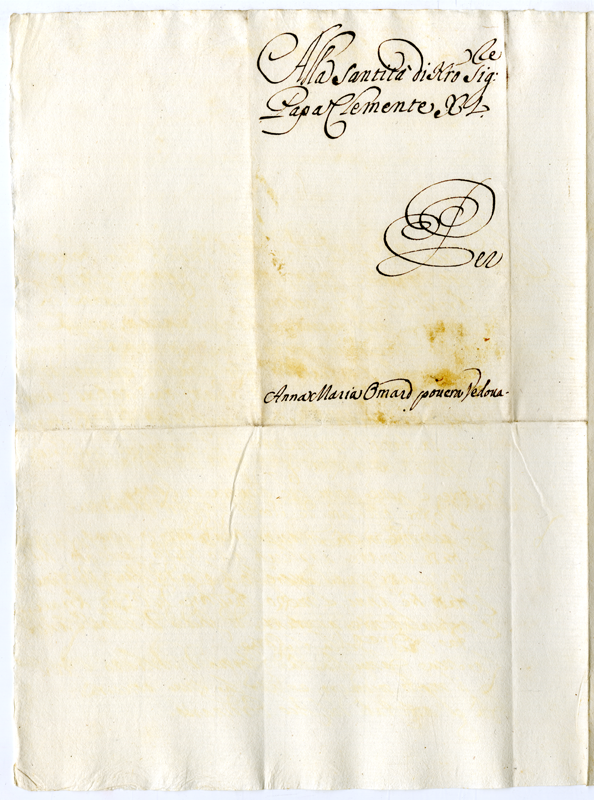 Alla Santità di Nrõ Sig:re
Papa Clemente XI.
Per
Anna Maria Omard povera Vedova.